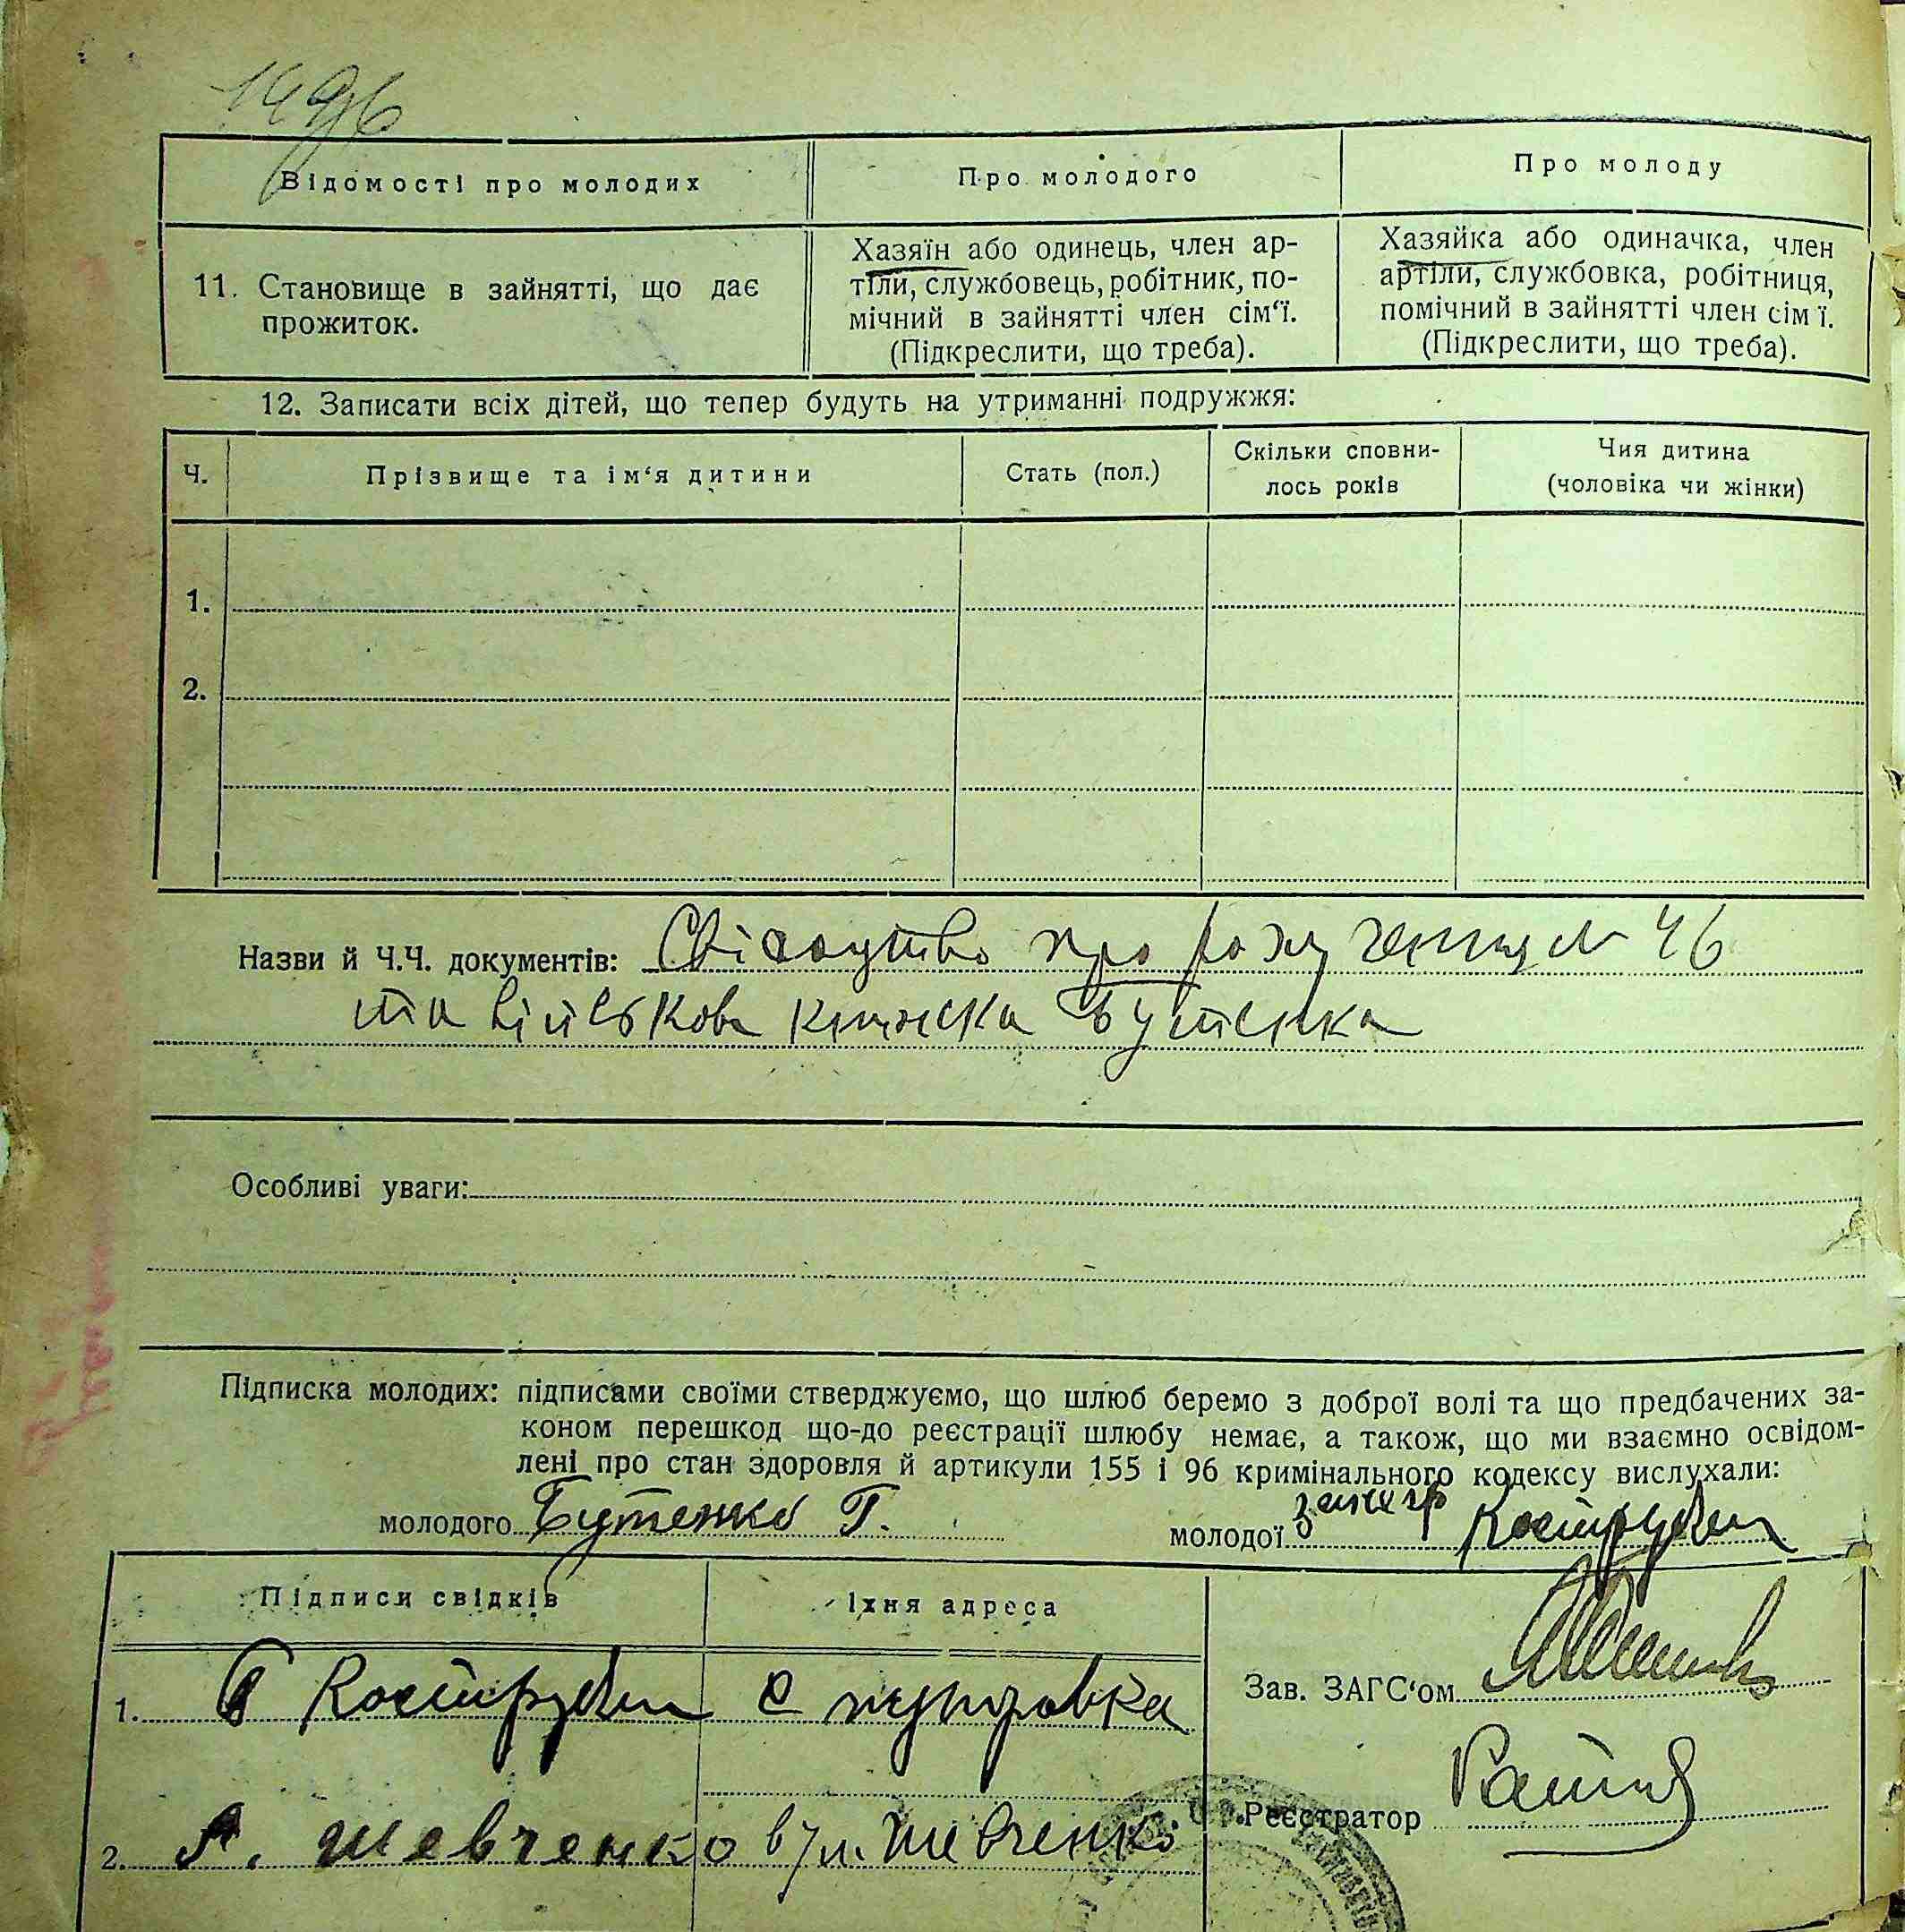 1496
Відомості про молодих
Про молодого
Про молоду
11. Становище в зайнятті, що дає
прожиток.
Хазяїн або одинець, член ар-
тіли, службовець, робітник, по-
мічний в зайнятті член сім‘ї.
(Підкреслити, що треба).
Хазяйка або одиначка, член
артіли, службовка, робітниця,
помічний в зайнятті член сім ї.
(Підкреслити, що треба).
12. Записати всіх дітей, що тепер будуть на утриманні подружжя:
Ч.
Прізвище та ім‘я дитини
Стать (пол.)
Скільки сповни-
лось років
Чия дитина
(чоловіка чи жінки)
1.
2.
Назви й Ч.Ч. документів: Свідоцтво про
та військова книжка Бутенка
Особливі уваги:
Підписка молодих: підписами своїми стверджуємо, що шлюб беремо з доброї волі та що предбачених за-
коном перешкод що-до реєстрації шлюбу немає, а також, що ми взаємно освідом-
лені про стан здоровля й артикули 155 і 96 кримінального кодексу вислухали:
молодого Бутенко Г.
молодої
Підписи свідків
Їхня адреса
1.
с
2. А. Шевченко вул. Шевченко
Зав. ЗАГС‘ом
Реєстратор